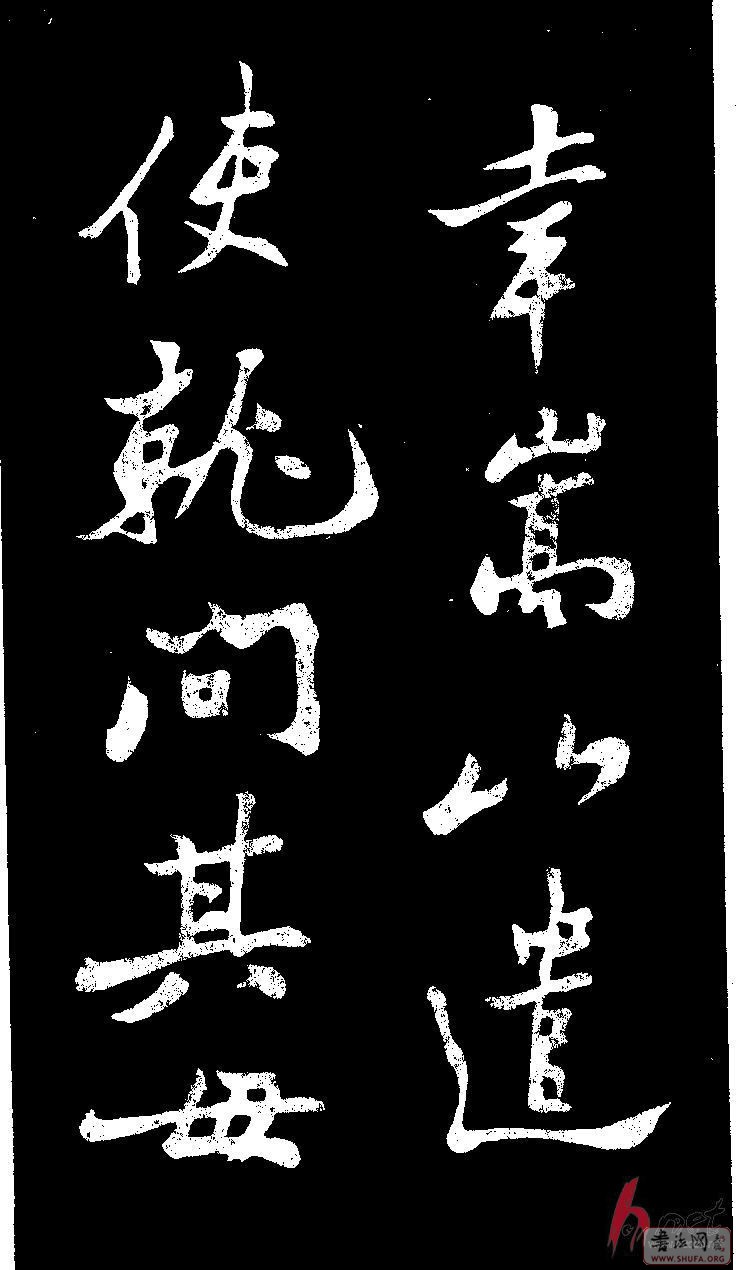 幸嵩山遣
使就问其母
書法网
WWW.SHUFA.ORG